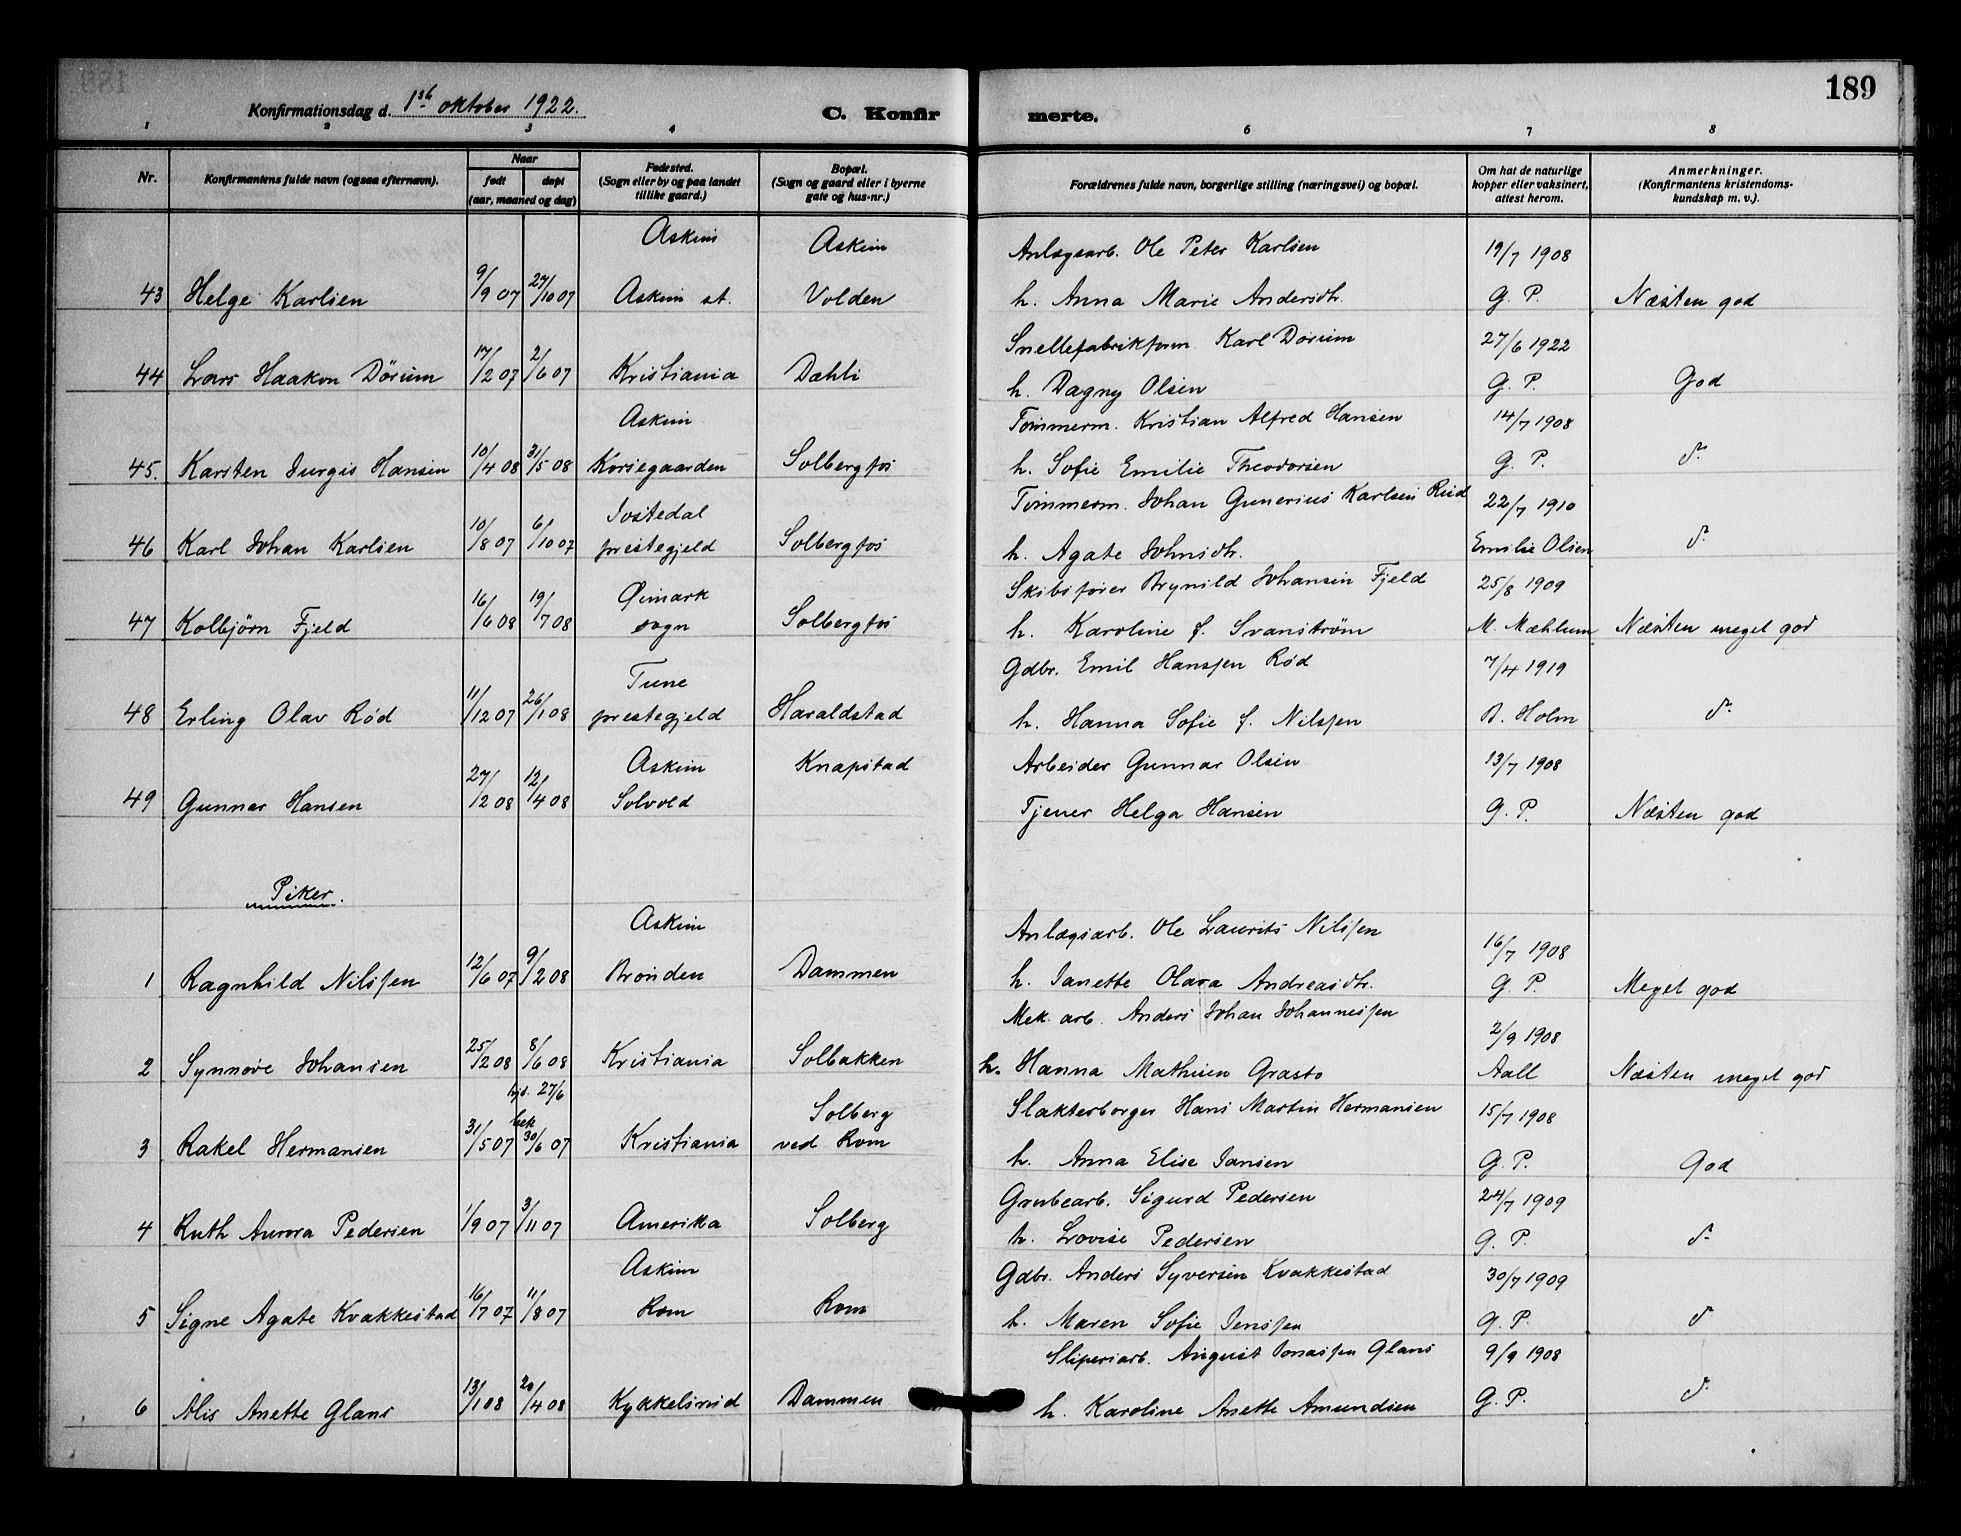 189
Konfirmationsdag d. 1st oktober 1922.
C. Konfirmerte.
1 2 3 4 6 7 8
Nr.
Konfirmantens fulde navn (ogsaa efternavn).
Naar
født døpt
(aar, maaned og dag)
Fødested.
(Sogn eller by og paa landet
tillike gaard.)
Bopæl.
(Sogn og gaard eller i byerne
gate og hus-nr.)
Forældrenes fulde navn, borgerlige stilling (næringsvei) og bopæl.
Om hat de naturlige
kopper eller vaksinert,
attest herom.
Anmerkninger.
(Konfirmantens kristendoms-
kundskap m. v.).
Askim Askim Anlægsarb. Ole Peter Karlsen 19/7 1908
43 Helge Karlsen 9/9 07 27/10 07 Askim st. Volden h. Anna Marie Andersdtr. G. P. Næsten god
Snellefabrikform. Karl Dørum 27/6 1922
44 Lars Haakon Dörum 17/2 07 2/6 07 Kristiania Dæhli h. Dagny Olsen G. P. God
Askim Tømmerm. Kristian Alfred Hansen 14/7 1908
45. Karsten Jurgis Hansen 10/4 08 31/5 08 Korsegaarden Solbergfos h. Sofie Emilie Theodorsen G. P. d.
Jostedal Tømmerm. Johan Gunerius Karlsen Rud 22/7 1910
46 Karl Johan Karlsen 10/8 07 6/10 07 prestegjeld Solbergfos h. Agate Johnsdtr. Emilie Olsen d.
Øimark Skibsfører Brynild Johansen Fjeld 25/8 1909
47 Kolbjörn Fjeld 16/6 08 19/7 08 sogn Solbergfos h. Karoline f. Svanstrøm M. Mæhlum Næsten meget god
Tune Gdbr. Emil Hanssen Rød 7/4 1919
48 Erling Olav Rød 11/12 07 26/1 08 prestegjeld Haraldstad h. Hanna Sofie f. Nilssen B. Holm d.
Askim Knapstad Arbeider Gunnar Olsen 13/7 1908
49 Gunnar Hansen 27/2 08 12/4 08 Solvold Tjener Helga Hansen G. P. Næsten god
Piker.
Askim Anlægsarb. Ole Laurits Nilssen 16/7 1908
1 Ragnhild Nilssen 12/6 07 9/2 08 Brønden Dammen h. Janette Olava Andreasdtr. G. P. Meget god
Mek. arb. Anders Johan Johannessen 2/9 1908
2 Synnøve Johansen 25/2 08 8/6 08 Kristiania Solbakken h. Hanna Mathisen Grasto Aall Næsten meget god
hjd. 27/6 Solberg Slakterborger Hans Martin Hermansen 15/7 1908
bek
3 Rakel Hermansen 31/5 07 30/6 07 Kristiania ved Rom h. Anna Elise Jansen G. P. God
Grubearb. Sigurd Pedersen 24/7 1909
4 Ruth Aurora Pedersen 1/9 07 3/11 07 Amerika Solberg h. Lovise Pedersen G. P. d.
Askim Gdbr. Anders Syversen Kvakkestad 30/7 1909
5 Signe Agate Kvakkestad 16/7 07 11/8 07 Rom Rom h. Maren Sofie Jenssen G. P. d
Sliperiarb. August Jonassen Glans 9/9 1908
6 Alis Anette Glans 13/1 08 20/4 08 Kykkelsrud Dammen h. Karoline Anette Amundsen G. P. d.